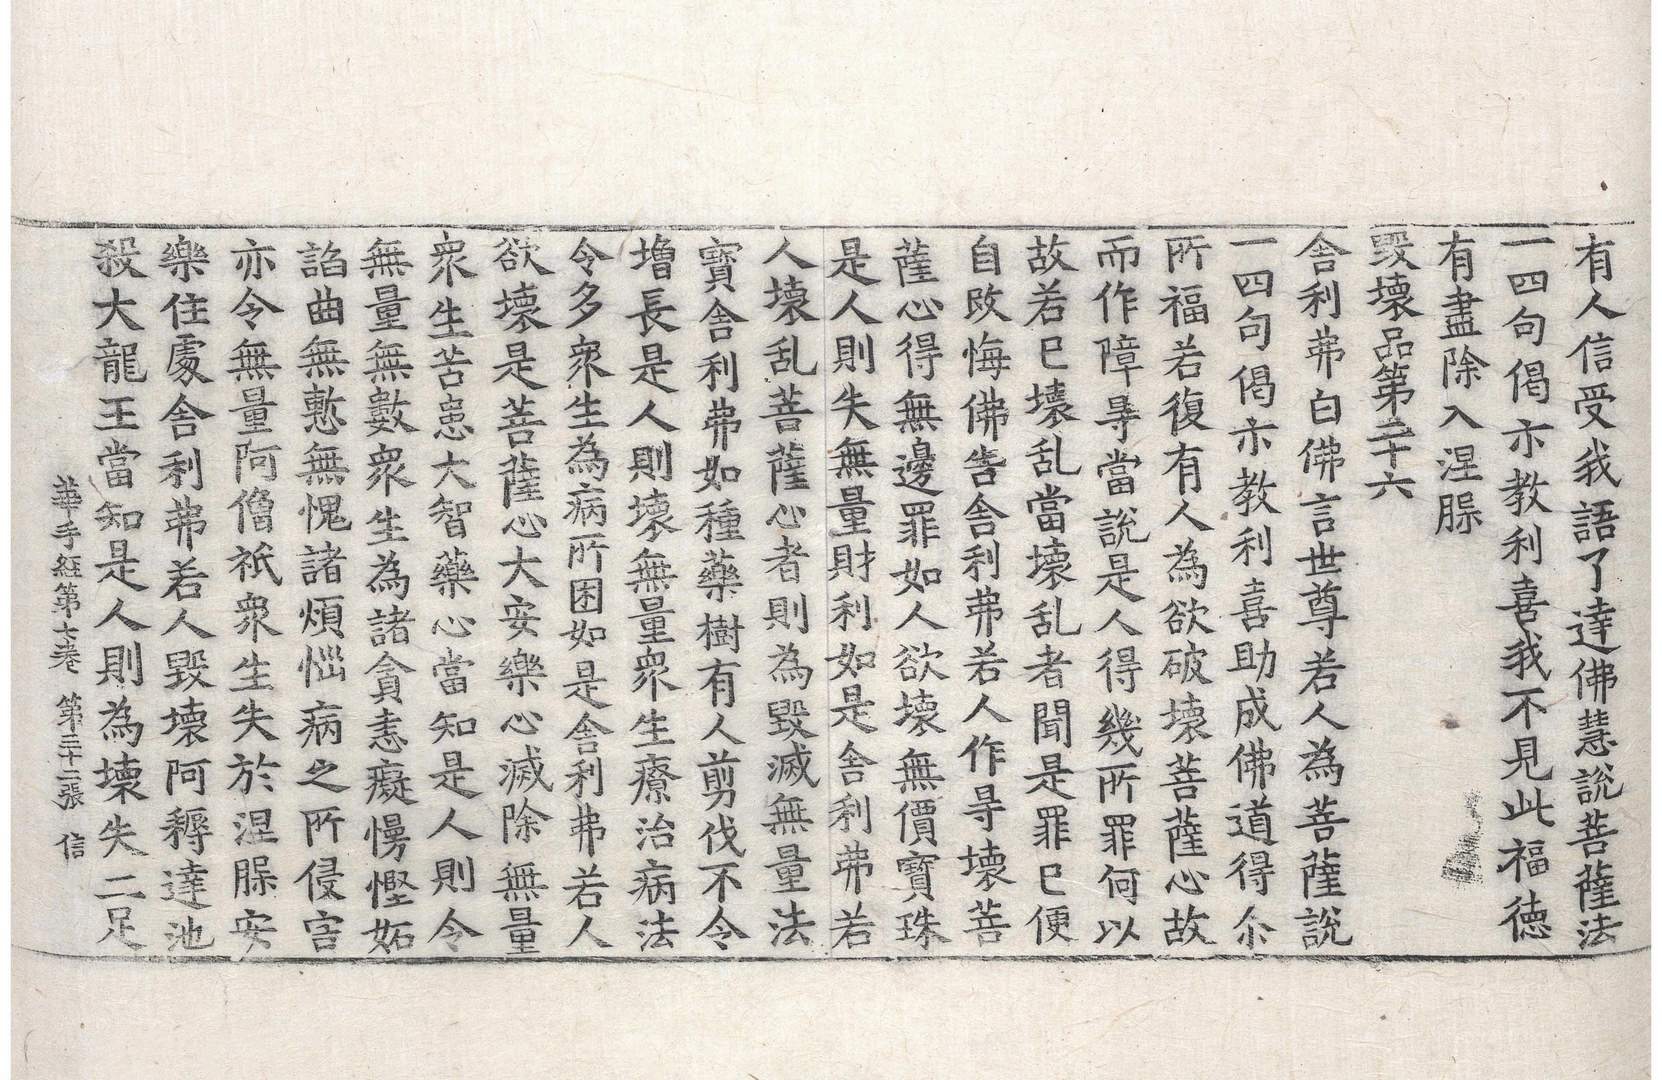 有人信受我語了達佛慧說菩薩法
一四句偈亦教利喜我不見此福德
有盡除入涅槃
毀壞品第二十六
舍利弗白佛言世尊若人為菩薩說
一四句偈亦教利喜助成佛道得尒
所福若復有人為欲破壞菩薩心故
而作障㝵當說是人得幾所罪何以
故若已壞乱當壞乱者聞是罪已便
自改悔佛告舍利弗若人作㝵壞菩
薩心得無邊罪如人欲壞無價寶珠
是人則失無量財利如是舍利弗若
人壞乱菩薩心者則為毀滅無量法
寶舍利弗如種藥樹有人剪伐不令
増長是人則壞無量衆生療治病法
令多衆生為病所困如是舍利弗若人
欲壞是菩薩心大安樂心滅除無量
衆生苦患大智藥心當知是人則令
無量無數衆生為諸貪恚癡慢慳妬
諂曲無慙無愧諸煩惱病之所侵害
亦令無量阿僧祇衆生失於涅槃安
樂住處舍利弗若人毀壞阿耨達池
殺大龍王當知是人則為壞失二足
華手經第七卷 第三十二張 信